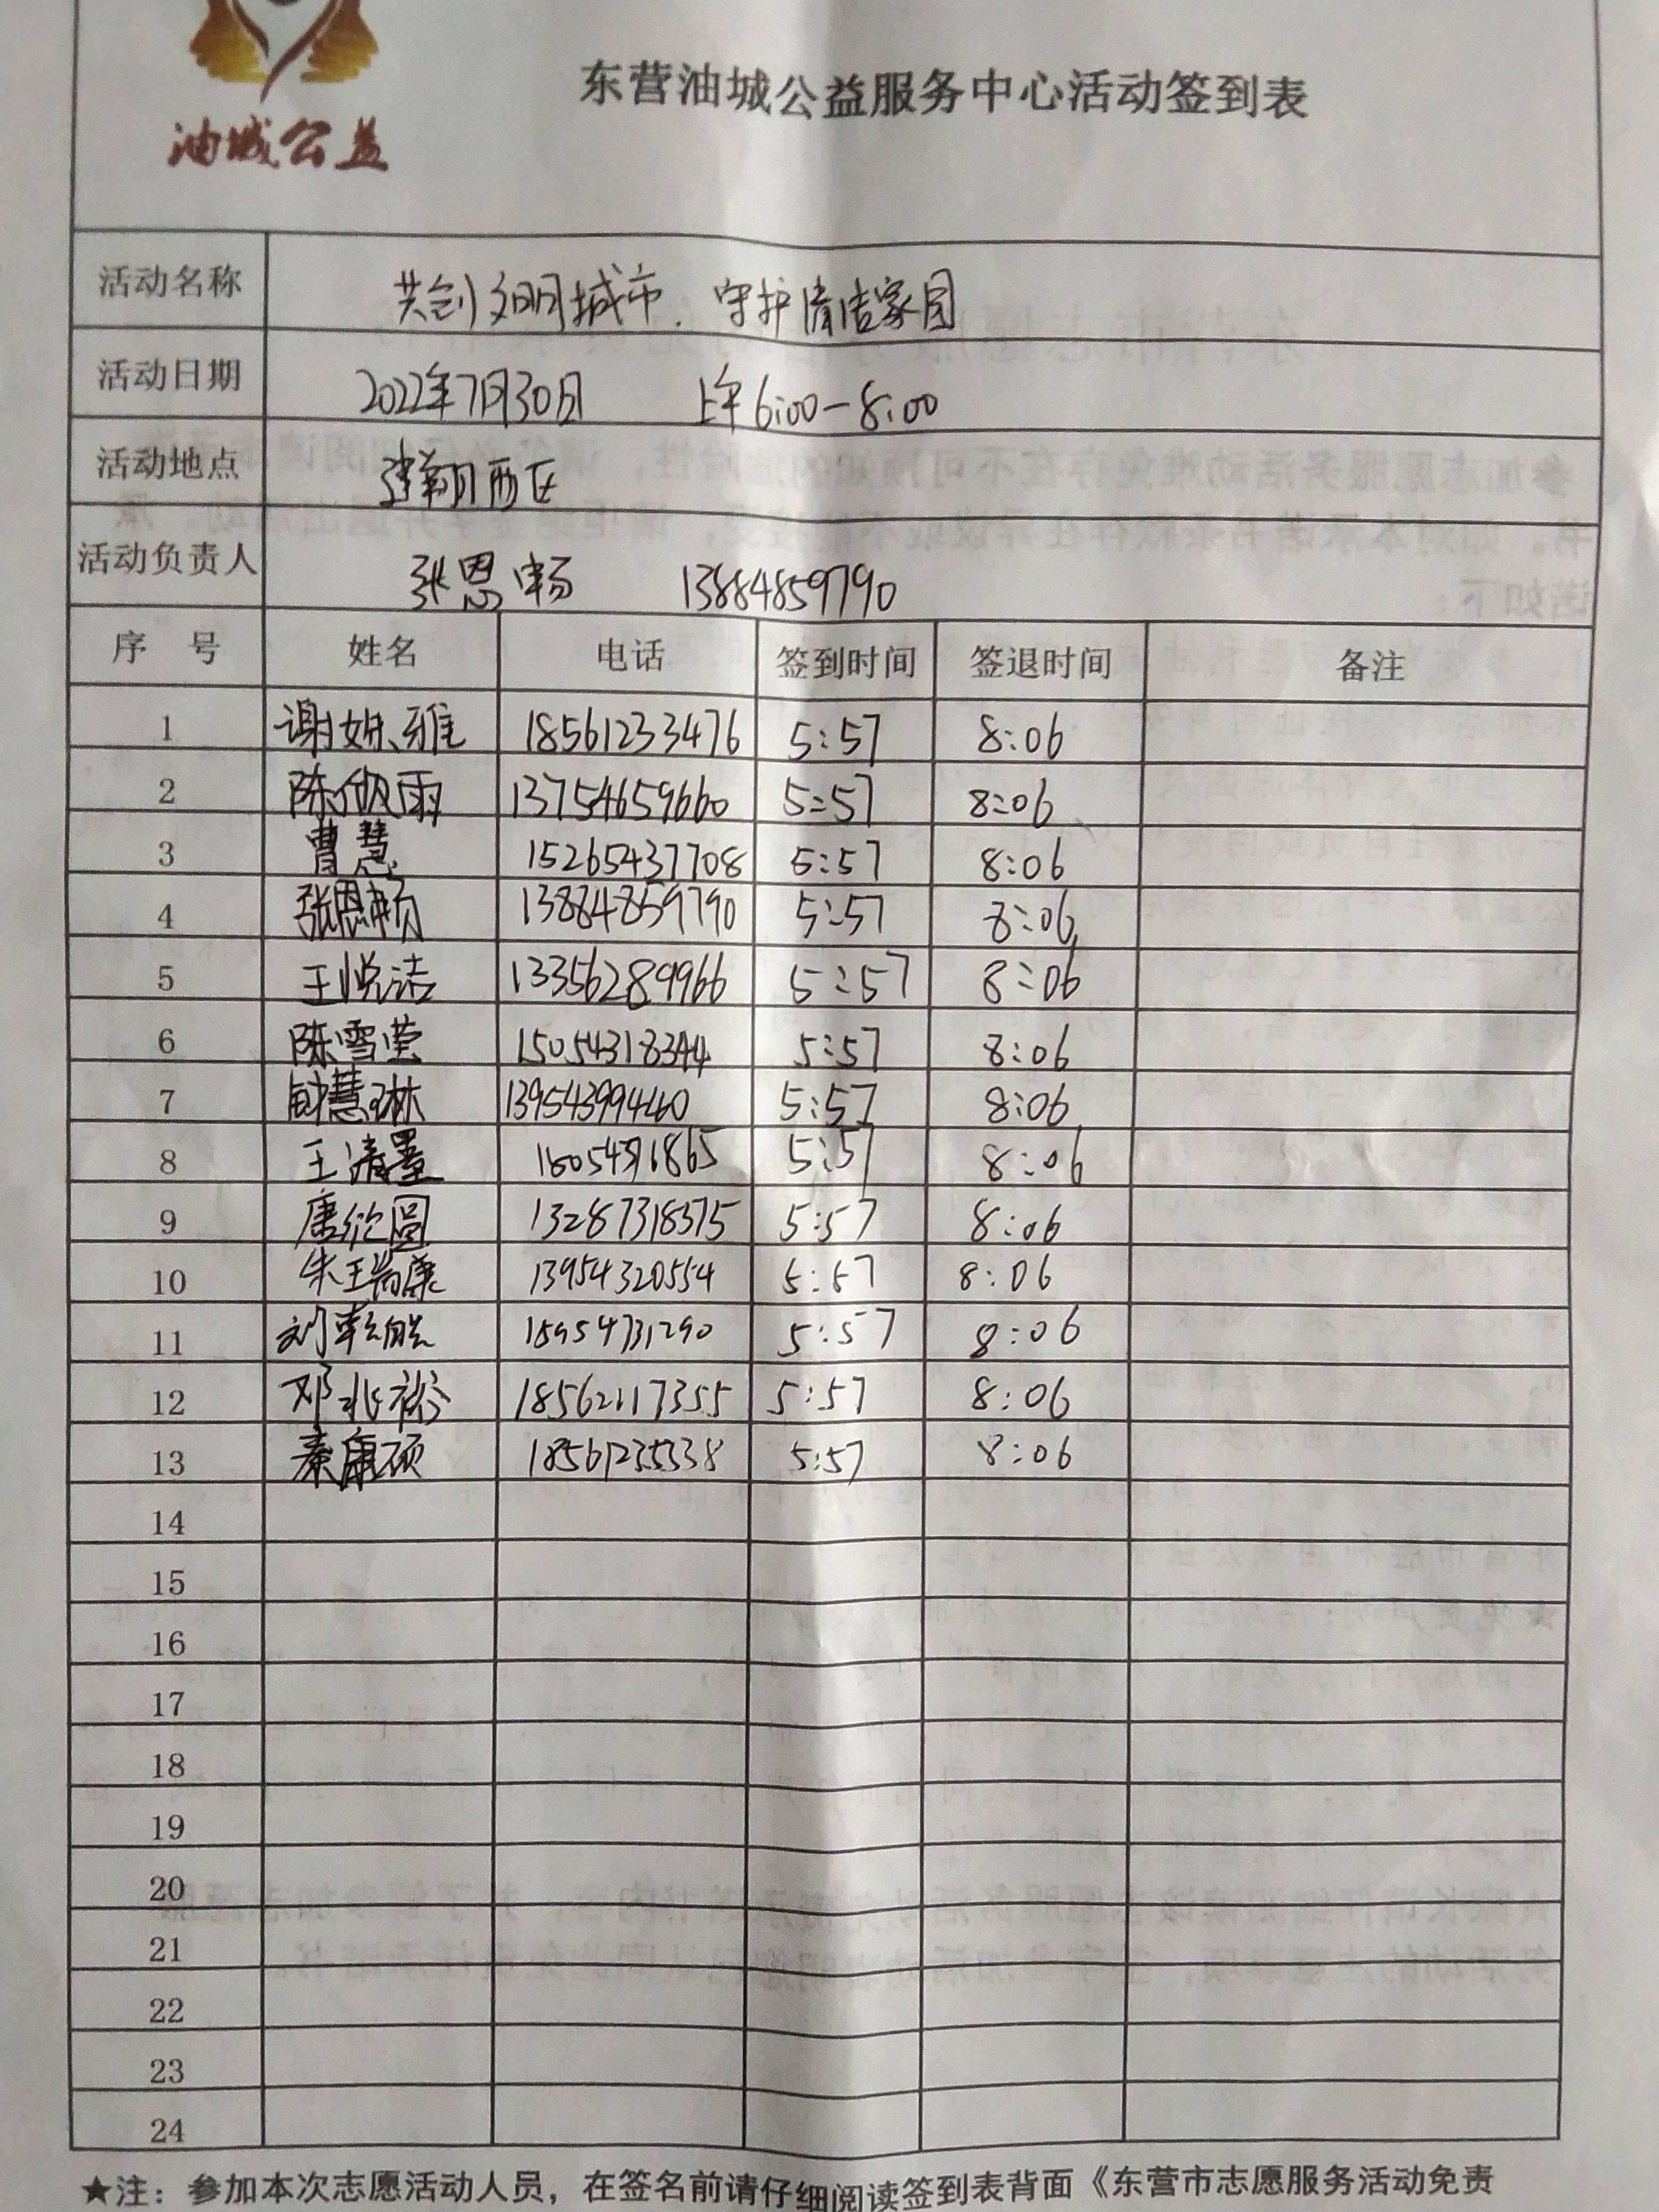 油城公益
东营油城公益服务中心活动签到表
活动名称 共创文明城市、守护清洁家园
活动日期 2022年7月30日 上午6:00-8:00
活动地点 建翔西区
活动负责人 张恩畅 13884859790
序 号 姓名 电话 签到时间 签退时间 备注
1 谢姝雅 18561233476 5:57 8:06
2 陈欣雨 13754659660 5:57 8:06
3 曹慧 15265437708 5:57 8:06
4 张恩畅 13884859790 5:57 8:06
5 王悦洁 13356289966 5:57 8:06
6 陈雪莹 15054318344 5:57 8:06
7 钟慧琳 5:57 8:06
8 王清墨 5:57 8:06
9 唐欣圆 13287318575 5:57 8:06
10 朱王瑞康 13954320554 5:57 8:06
11 刘 5:57 8:06
12 邓兆 18562117355 5:57 8:06
13 秦康硕 18561235338 5:57 8:06
14
15
16
17
18
19
20
21
22
23
24
★注：参加本次志愿活动人员，在签名前请仔细阅读签到表背面《东营市志愿服务活动免责